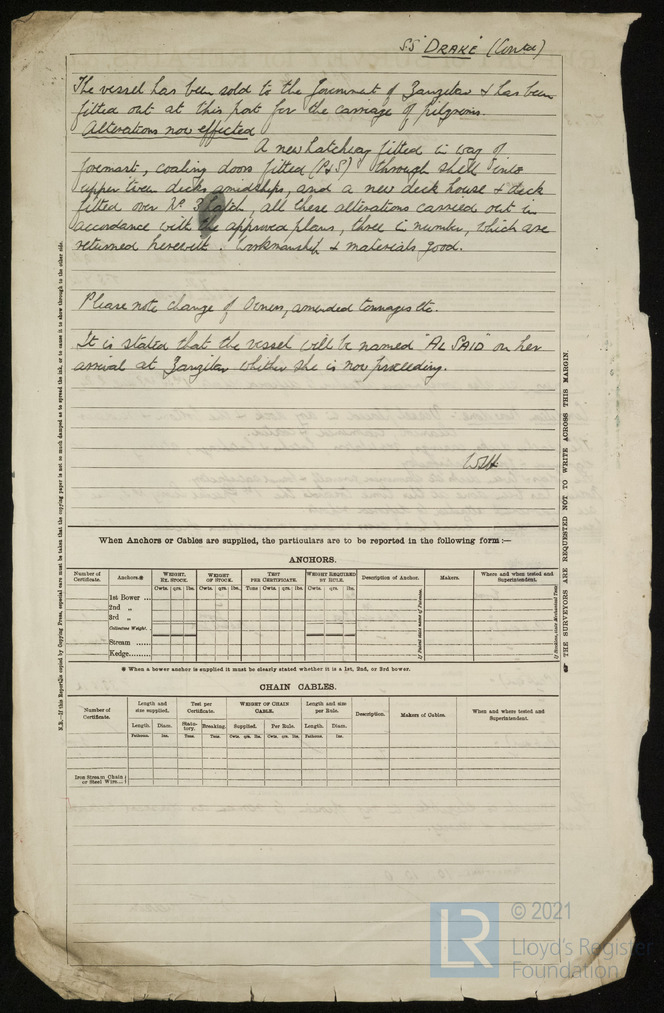 SS "DRAKE" (Contd)
The vessel has been sold to the Government of Zanzibar & has been
fitted out at this port for the carriage of pilgrims.
Alterations now effected
A new hatchway fitted in way of
foremast, coaling doors fitted (P&S) through shell into
upper tween decks amidships, and a new deck house & deck
fitted over No 3 hatch, all these alterations carried out in
accordance with the approved plans, three in number, which are
returned herewith. Workmanship & materials good.
Please note change of Owners, amended tonnages etc.
It is stated that the vessel will be named "AL SAID" on her
arrival at Zanzibar whither she is now proceeding.
When Anchors or Cables are supplied, the particulars are to be reported in the following form:—
ANCHORS.
Number of Certificate. Anchors.* WEIGHT, EX. STOCK. WEIGHT OF STOCK. TEST PER CERTIFICATE. WEIGHT REQUIRED BY RULE. Description of Anchor. If Patent state name of Patentee. Makers. Where and when tested and Superintendent.
Cwts. qrs. lbs. Cwts. qrs. lbs. Tons Cwts. qrs. lbs. Cwts. qrs. lbs.
1st Bower ...
2nd „
3rd „
Collective Weight.
Stream ......
Kedge......
* When a bower anchor is supplied it must be clearly stated whether it is a 1st, 2nd, or 3rd bower.
CHAIN CABLES.
Number of Certificate. Length and size supplied. Test per Certificate. WEIGHT OF CHAIN CABLE. Length and size per Rule. Description. Makers of Cables. When and where tested and Superintendent.
Length. Diam. Statutory. Breaking. Supplied. Per Rule. Length. Diam.
Fathoms. Ins. Tons. Tons. Cwts. qrs. lbs. Cwts. qrs. lbs. Fathoms. Ins.
Iron Stream Chain or Steel Wire...
N.B.—If this Report is copied by Copying Press, especial care must be taken that the copying paper is not so much damped as to spread the ink, or to cause it to show through to the other side.
THE SURVEYORS ARE REQUESTED NOT TO WRITE ACROSS THIS MARGIN.
LR
© 2021
Lloyd's Register
Foundation